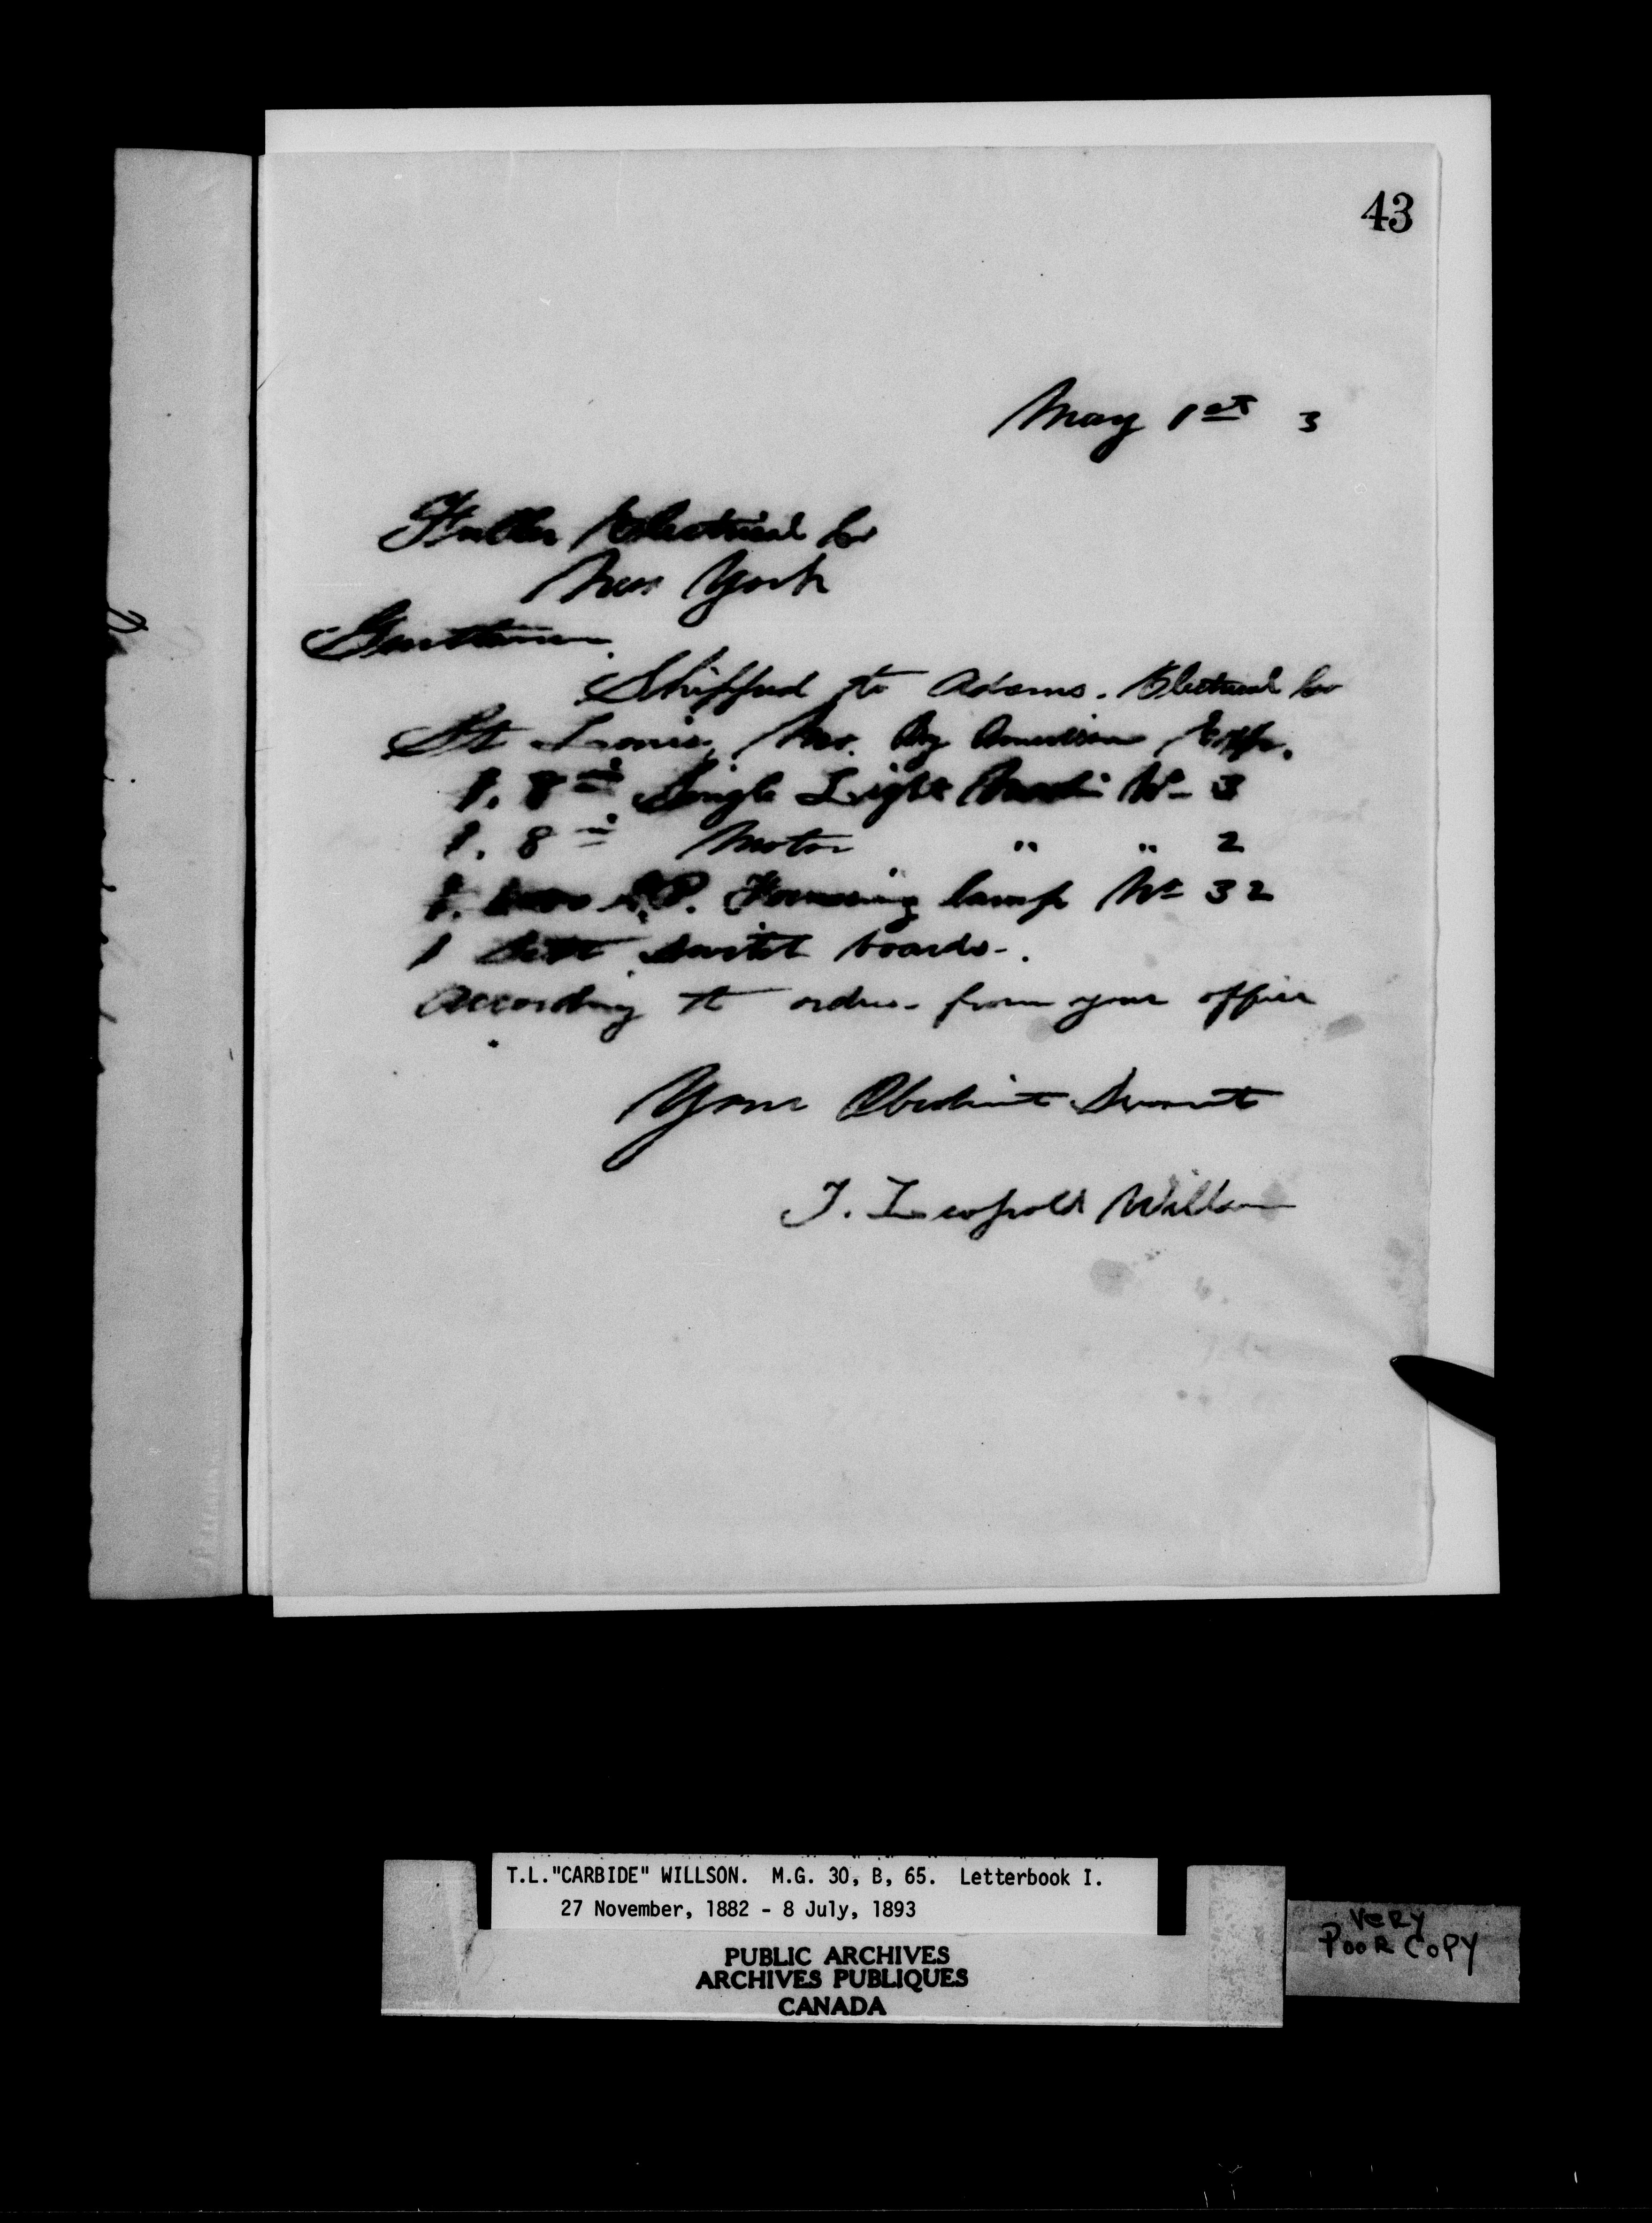 43
May 1st 3
Fuller Electrical Co
New York
Gentlemen.
Shipped to Adams. Electrical Co
St Louis, Mo. By American Exp.
1. 8 in Single Light No 3
1. 8 in Motor " " 2
1. C.P. Focussing lamp No 32
1 Sett Switch boards.
According to orders from your office
Your Obedient Servant
T. Leopold Willson
T.L."CARBIDE" WILLSON. M.G. 30, B, 65. Letterbook I.
27 November, 1882 - 8 July, 1893
PUBLIC ARCHIVES
ARCHIVES PUBLIQUES
CANADA
VERY
POOR COPY